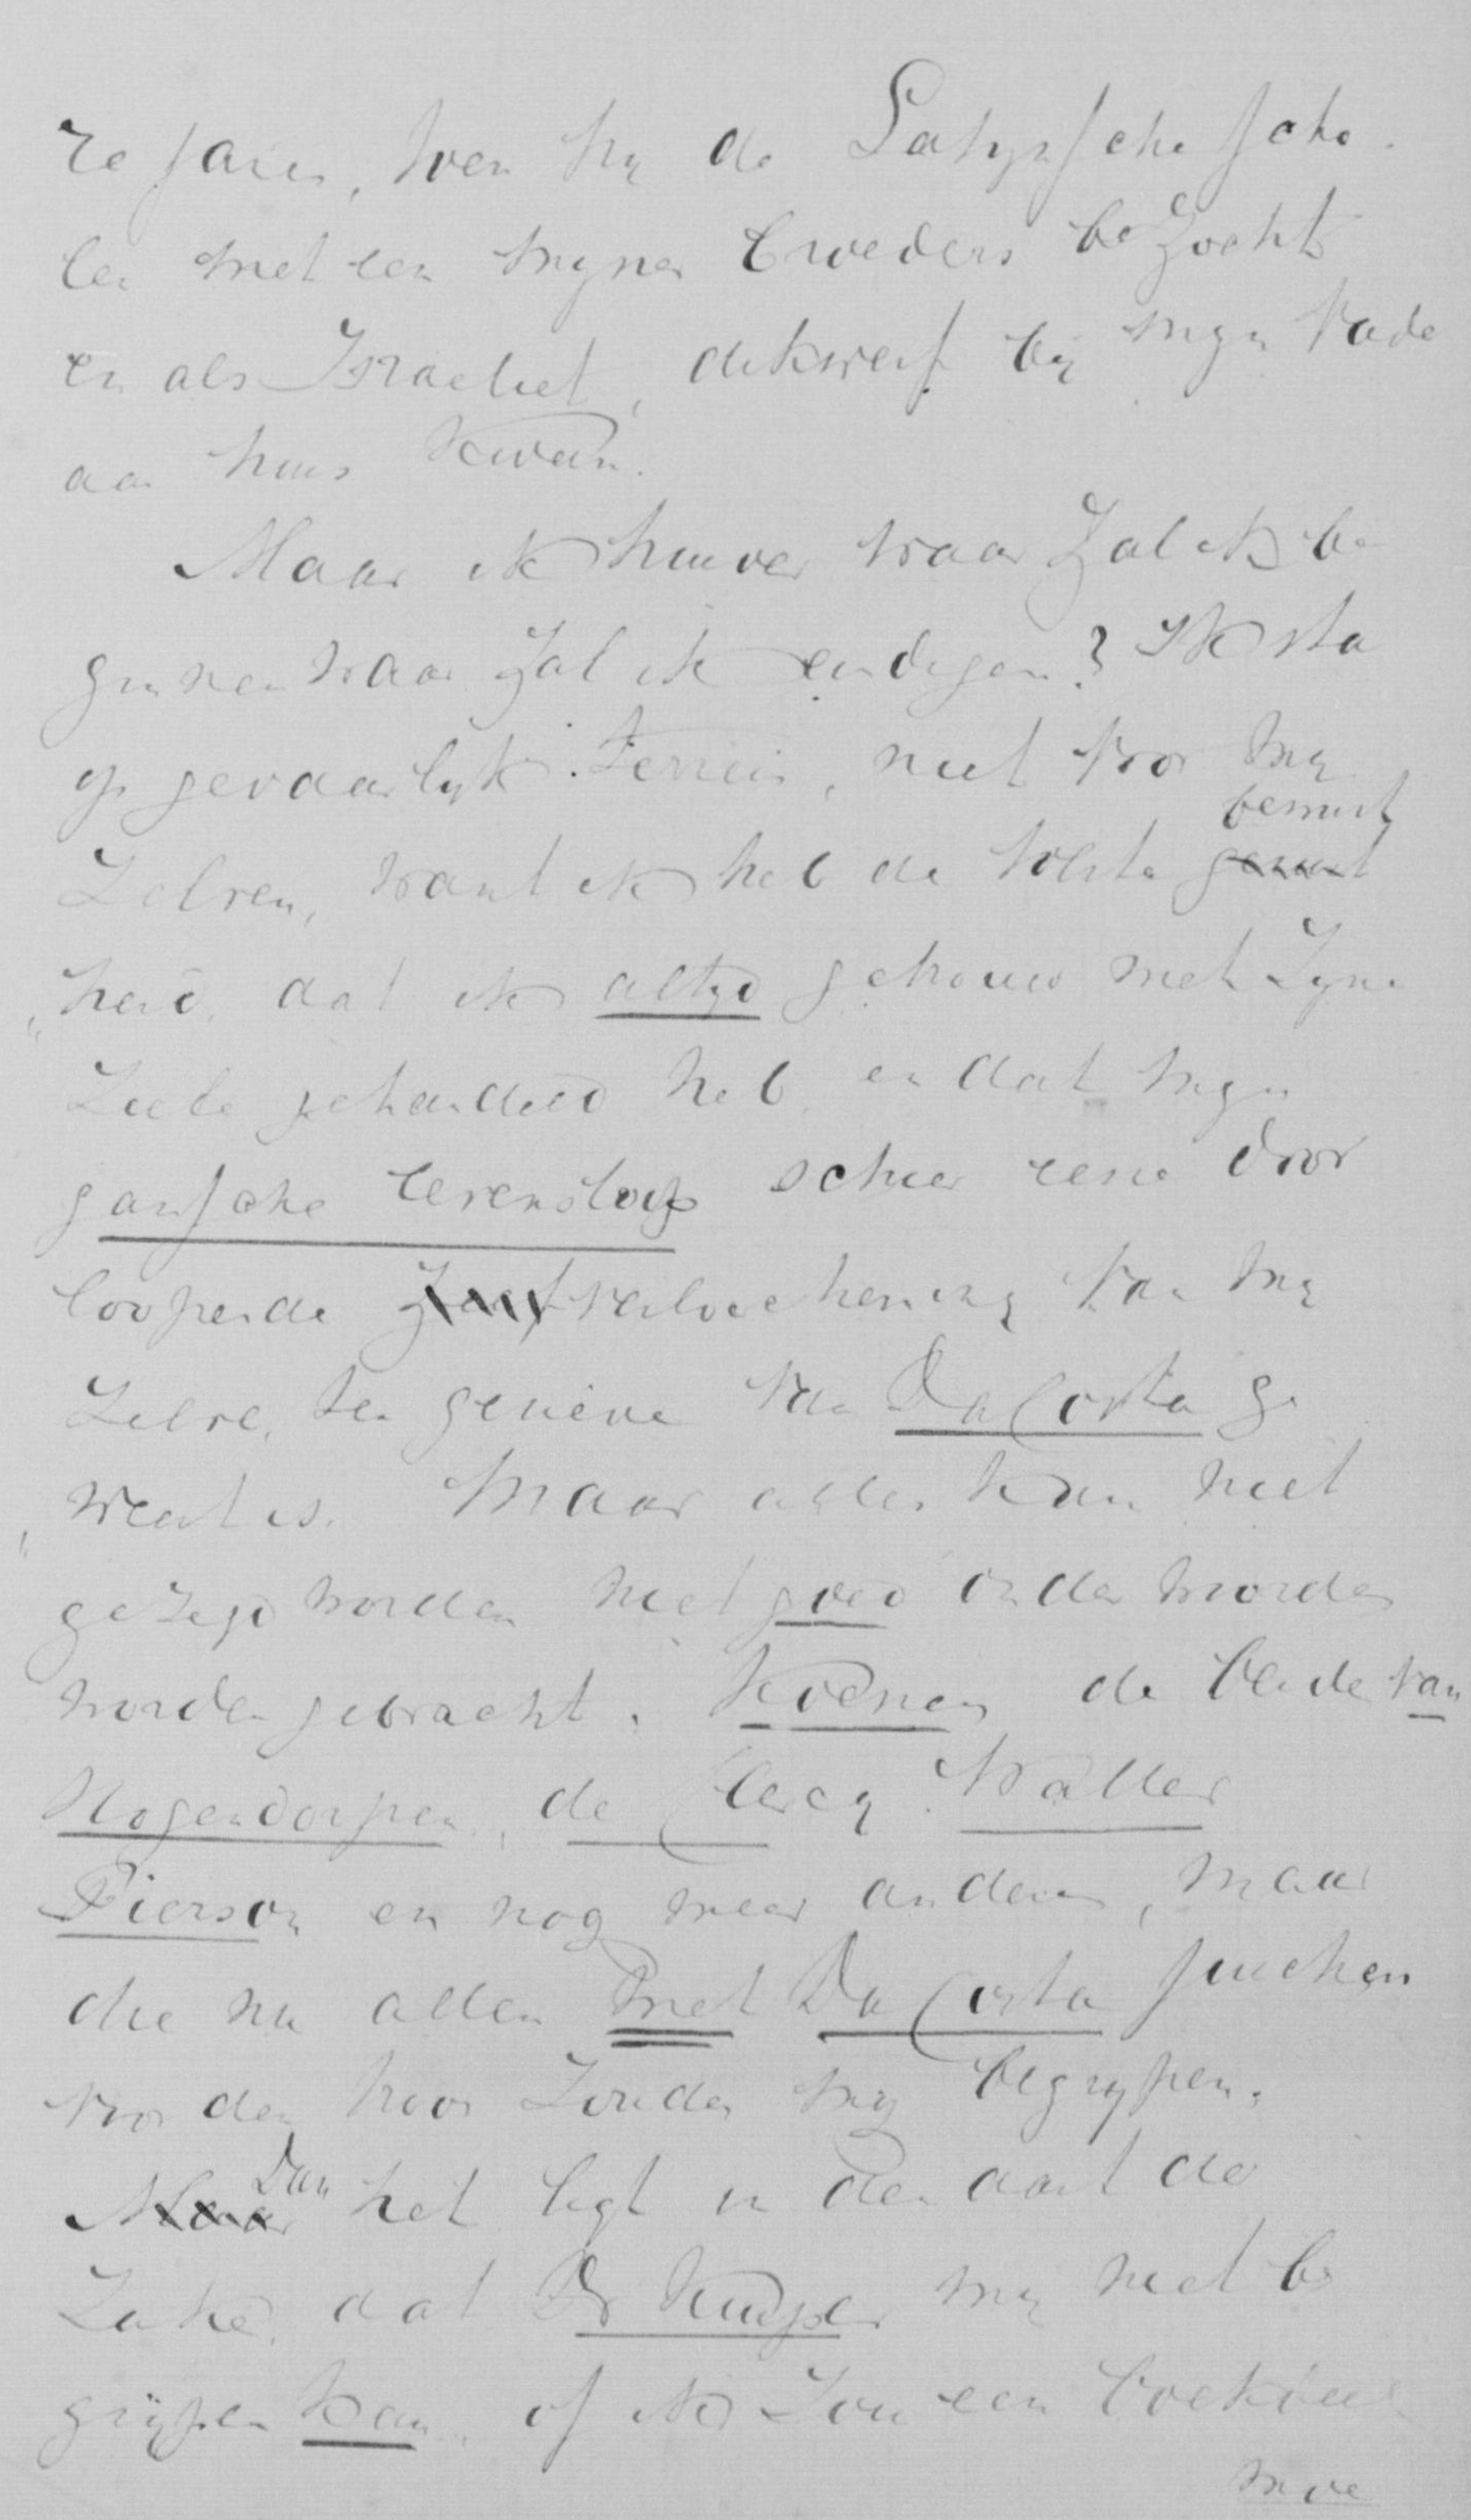 re jaren, toen hij de Latijnsche scho-
len met een mijner broeders bezocht
en als Israeliet, dikwerf bij mijn Vade
aan huis kwam.
Maar ik huiver waar zal ik be
ginnen waar zal ik eindigen? Ik sta
op gevaarlijk terrein, niet voor mij
bewust
zelven, want ik heb de volste gerust
heid, dat ik altijd getrouw met zijne
Liefde gehandeld heb, en dat mijn
gansche levensloop schier eene door
loopende zelfverloochening van mij
zelve, ten gerieve van Da Costa ge
weest is. Maar alles kan niet
gezegd worden niet goed onder woorden
worden gebracht. Koenen de beide van
Hogendorpen, de Clercq Waller
Pierson en nog meer anderen, maar
die nu allen met Da Costa juichen
voor den troon zouden mij begrijpen.
Dan
Maar het ligt in den aard der
Zake, dat Dr Kuijper mij niet be
grijpen kan, of ik zou een boekdeel
moe